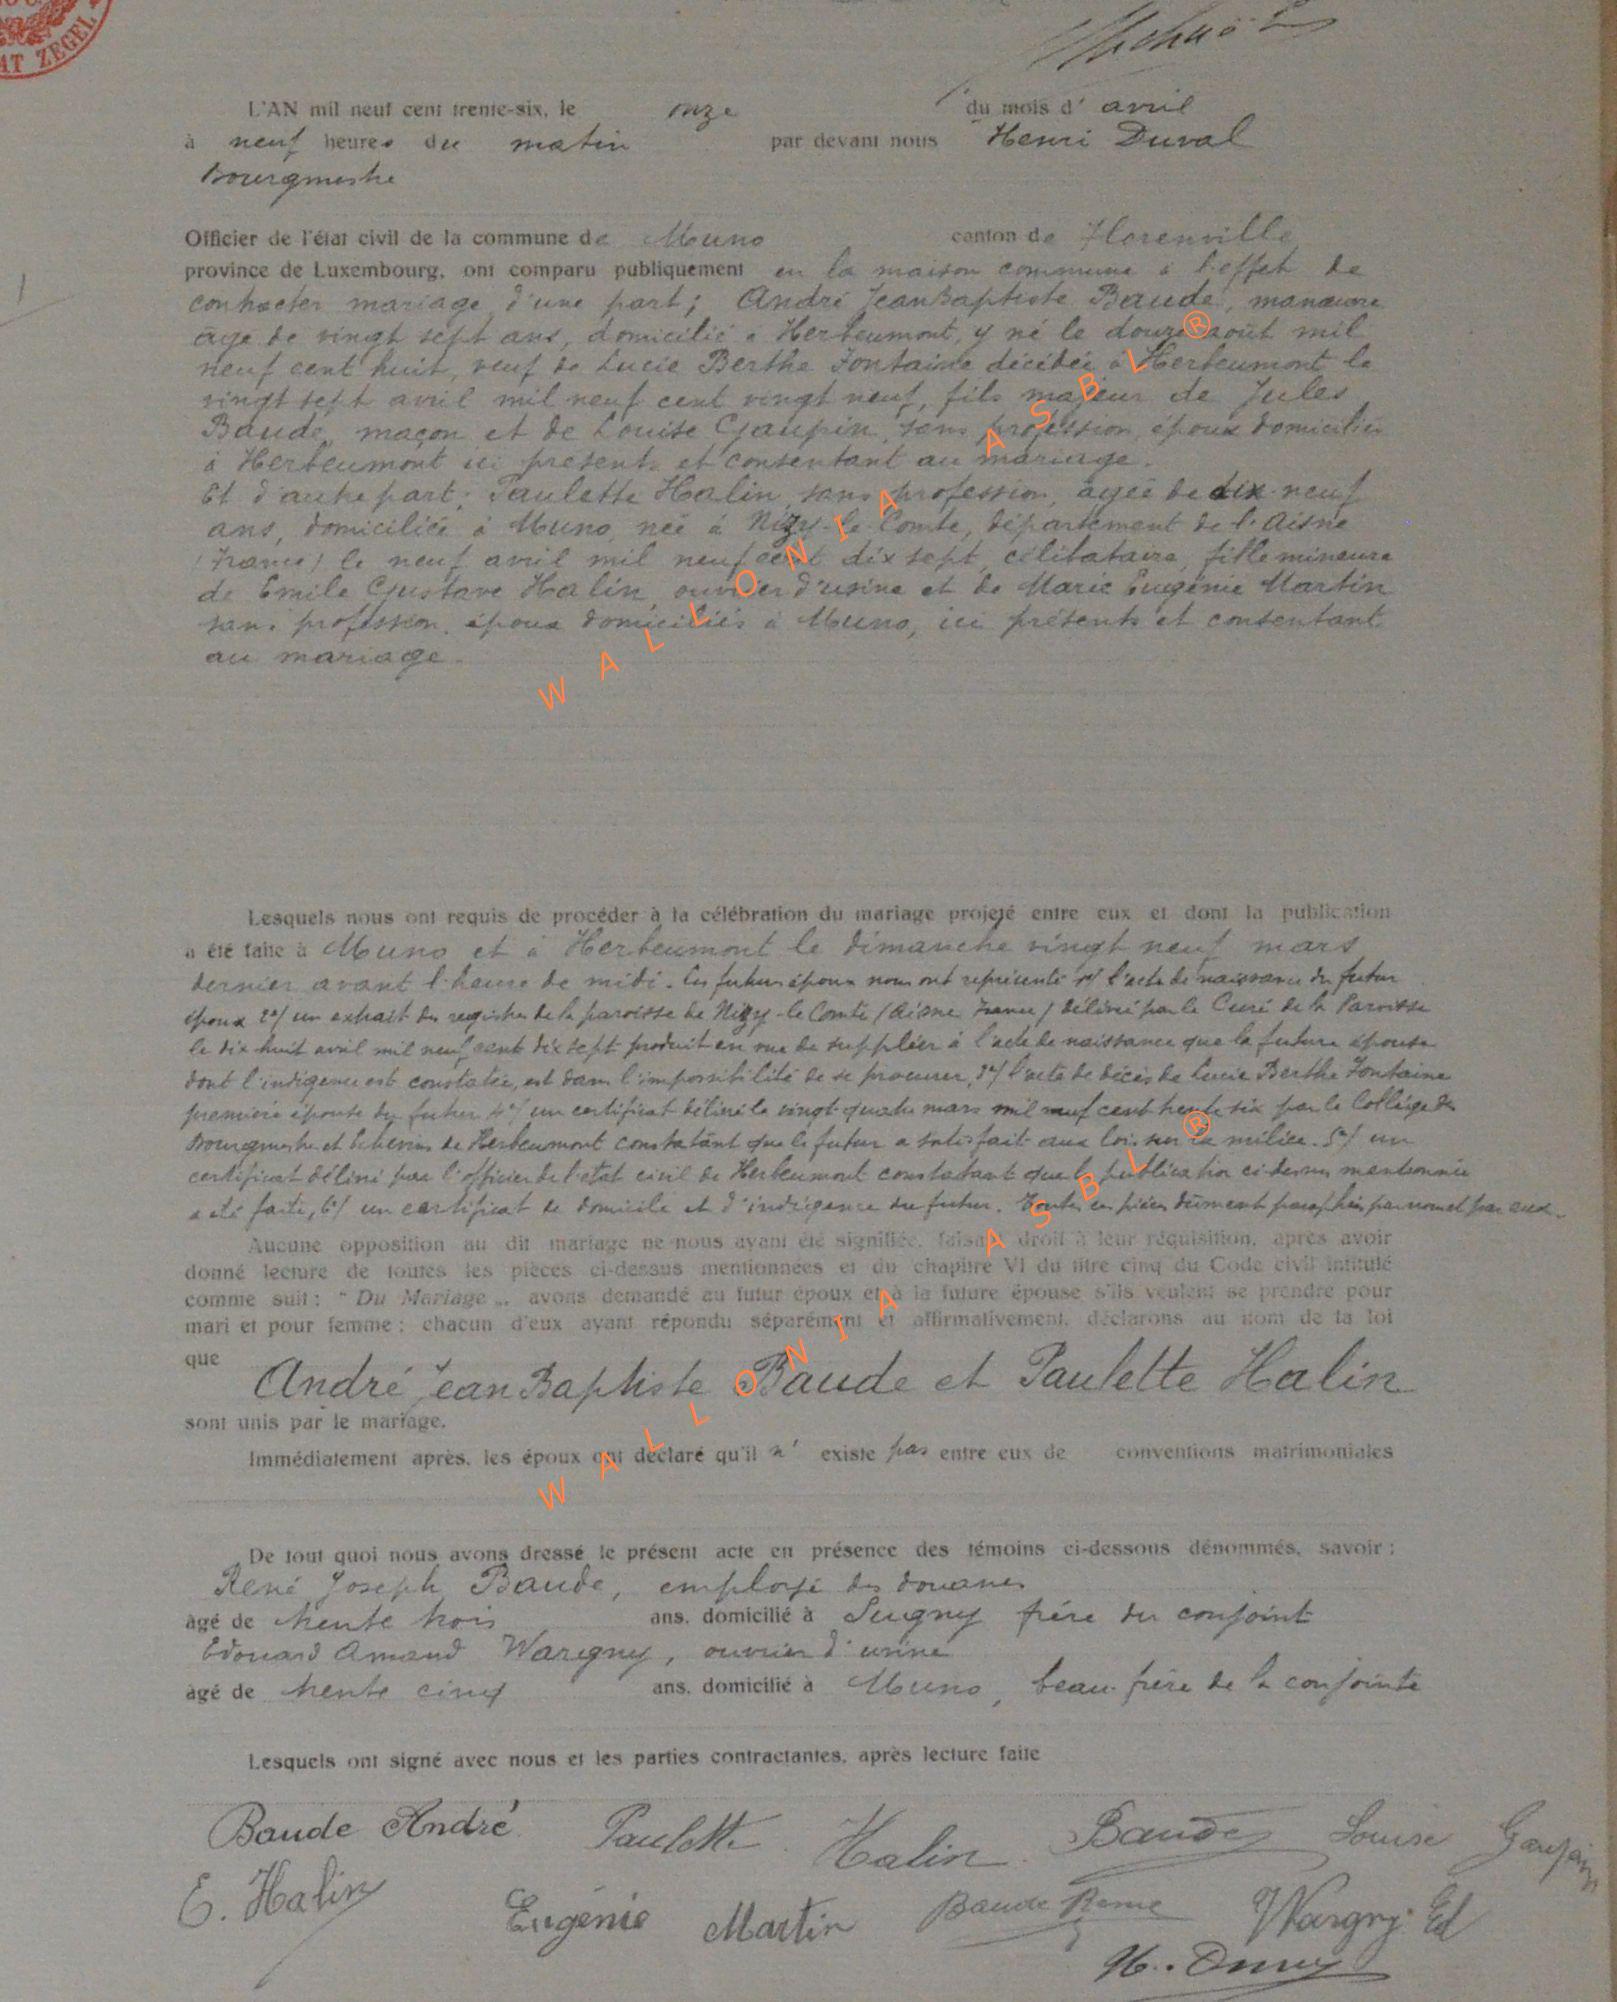 AT ZEGEL
L'AN mil neuf cent trente-six, le onze du mois d' avril
à neuf heures du matin par devant nous Henri Duval
Bourgmestre
Officier de l'état civil de la commune de Muno canton de Florenville
province de Luxembourg, ont comparu publiquement en la maison commune à l'effet de
contracter mariage d'une part; André Jean Baptiste Baude, manœuvre
âgé de vingt sept ans, domicilié à Herbeumont, y né le douze août mil
neuf cent huit, veuf de Lucie Berthe Fontaine décédée à Herbeumont le
vingt sept avril mil neuf cent vingt neuf, fils majeur de Jules
Baude, maçon et de Louise Gaupin, sans profession, époux domiciliés
à Herbeumont ici présents et consentant au mariage.
Et d'autre part; Paulette Halin, sans profession, agée de dix-neuf
ans, domiciliée à Muno, née à Nizy-le-Comte, département de l'Aisne
(France) le neuf avril mil neuf cent dix sept, célibataire, fille mineure
de Emile Gustave Halin, ouvrier d'usine et de Marie Eugénie Martin
sans profession, époux domiciliés à Muno, ici présents et consentant
au mariage.
Lesquels nous ont requis de procéder à la célébration du mariage projeté entre eux et dont la publication
a été faite à Muno et à Herbeumont le dimanche vingt neuf mars
dernier avant l'heure de midi. Les futurs époux nous ont représenté 1°/ l'acte de naissance du futur
époux 2°/ un extrait des registres de la paroisse de Nizy-le-Comte (Aisne France) délivré par le Curé de la Paroisse
le dix huit avril mil neuf cent dix sept produit en vue de suppléer à l'acte de naissance que la future épouse
dont l'indigence est constatée, est dans l'impossibilité de se procurer, 3°/ l'acte de décès de Lucie Berthe Fontaine
première épouse du futur 4°/ un certificat délivré le vingt-quatre mars mil neuf cent trente six par le Collège des
Bourgmestre et Echevins de Herbeumont constatant que le futur a satisfait aux lois sur la milice. 5°/ un
certificat délivré par l'officier de l'état civil de Herbeumont constatant que la publication ci-dessus mentionnée
a été faite, 6°/ un certificat de domicile et d'indigence du futur. Toutes ces pièces dûment paraphées par nous et par eux.
Aucune opposition au dit mariage ne nous ayant été signifiée, faisant droit à leur réquisition, après avoir
donné lecture de toutes les pièces ci-dessus mentionnées et du chapitre VI du titre cinq du Code civil intitulé
comme suit : " Du Mariage ", avons demandé au futur époux et à la future épouse s'ils veulent se prendre pour
mari et pour femme ; chacun d'eux ayant répondu séparément et affirmativement, déclarons au nom de la loi
que André Jean Baptiste Baude et Paulette Halin
sont unis par le mariage.
Immédiatement après, les époux ont déclaré qu'il n' existe pas entre eux de conventions matrimoniales
De tout quoi nous avons dressé le présent acte en présence des témoins ci-dessous dénommés, savoir :
René Joseph Baude, employé des douanes
âgé de trente trois ans, domicilié à Sugny frère du conjoint
Edouard Amand Warigny, ouvrier d'usine
âgé de trente cinq ans, domicilié à Muno, beau-frère de la conjointe
Lesquels ont signé avec nous et les parties contractantes, après lecture faite
Baude André Paulette Halin Baude Louise Gaupin
E. Halin Eugénie Martin Baude René Wargny Ed
WALLONIA ASBL ®
WALLONIA ASBL ®